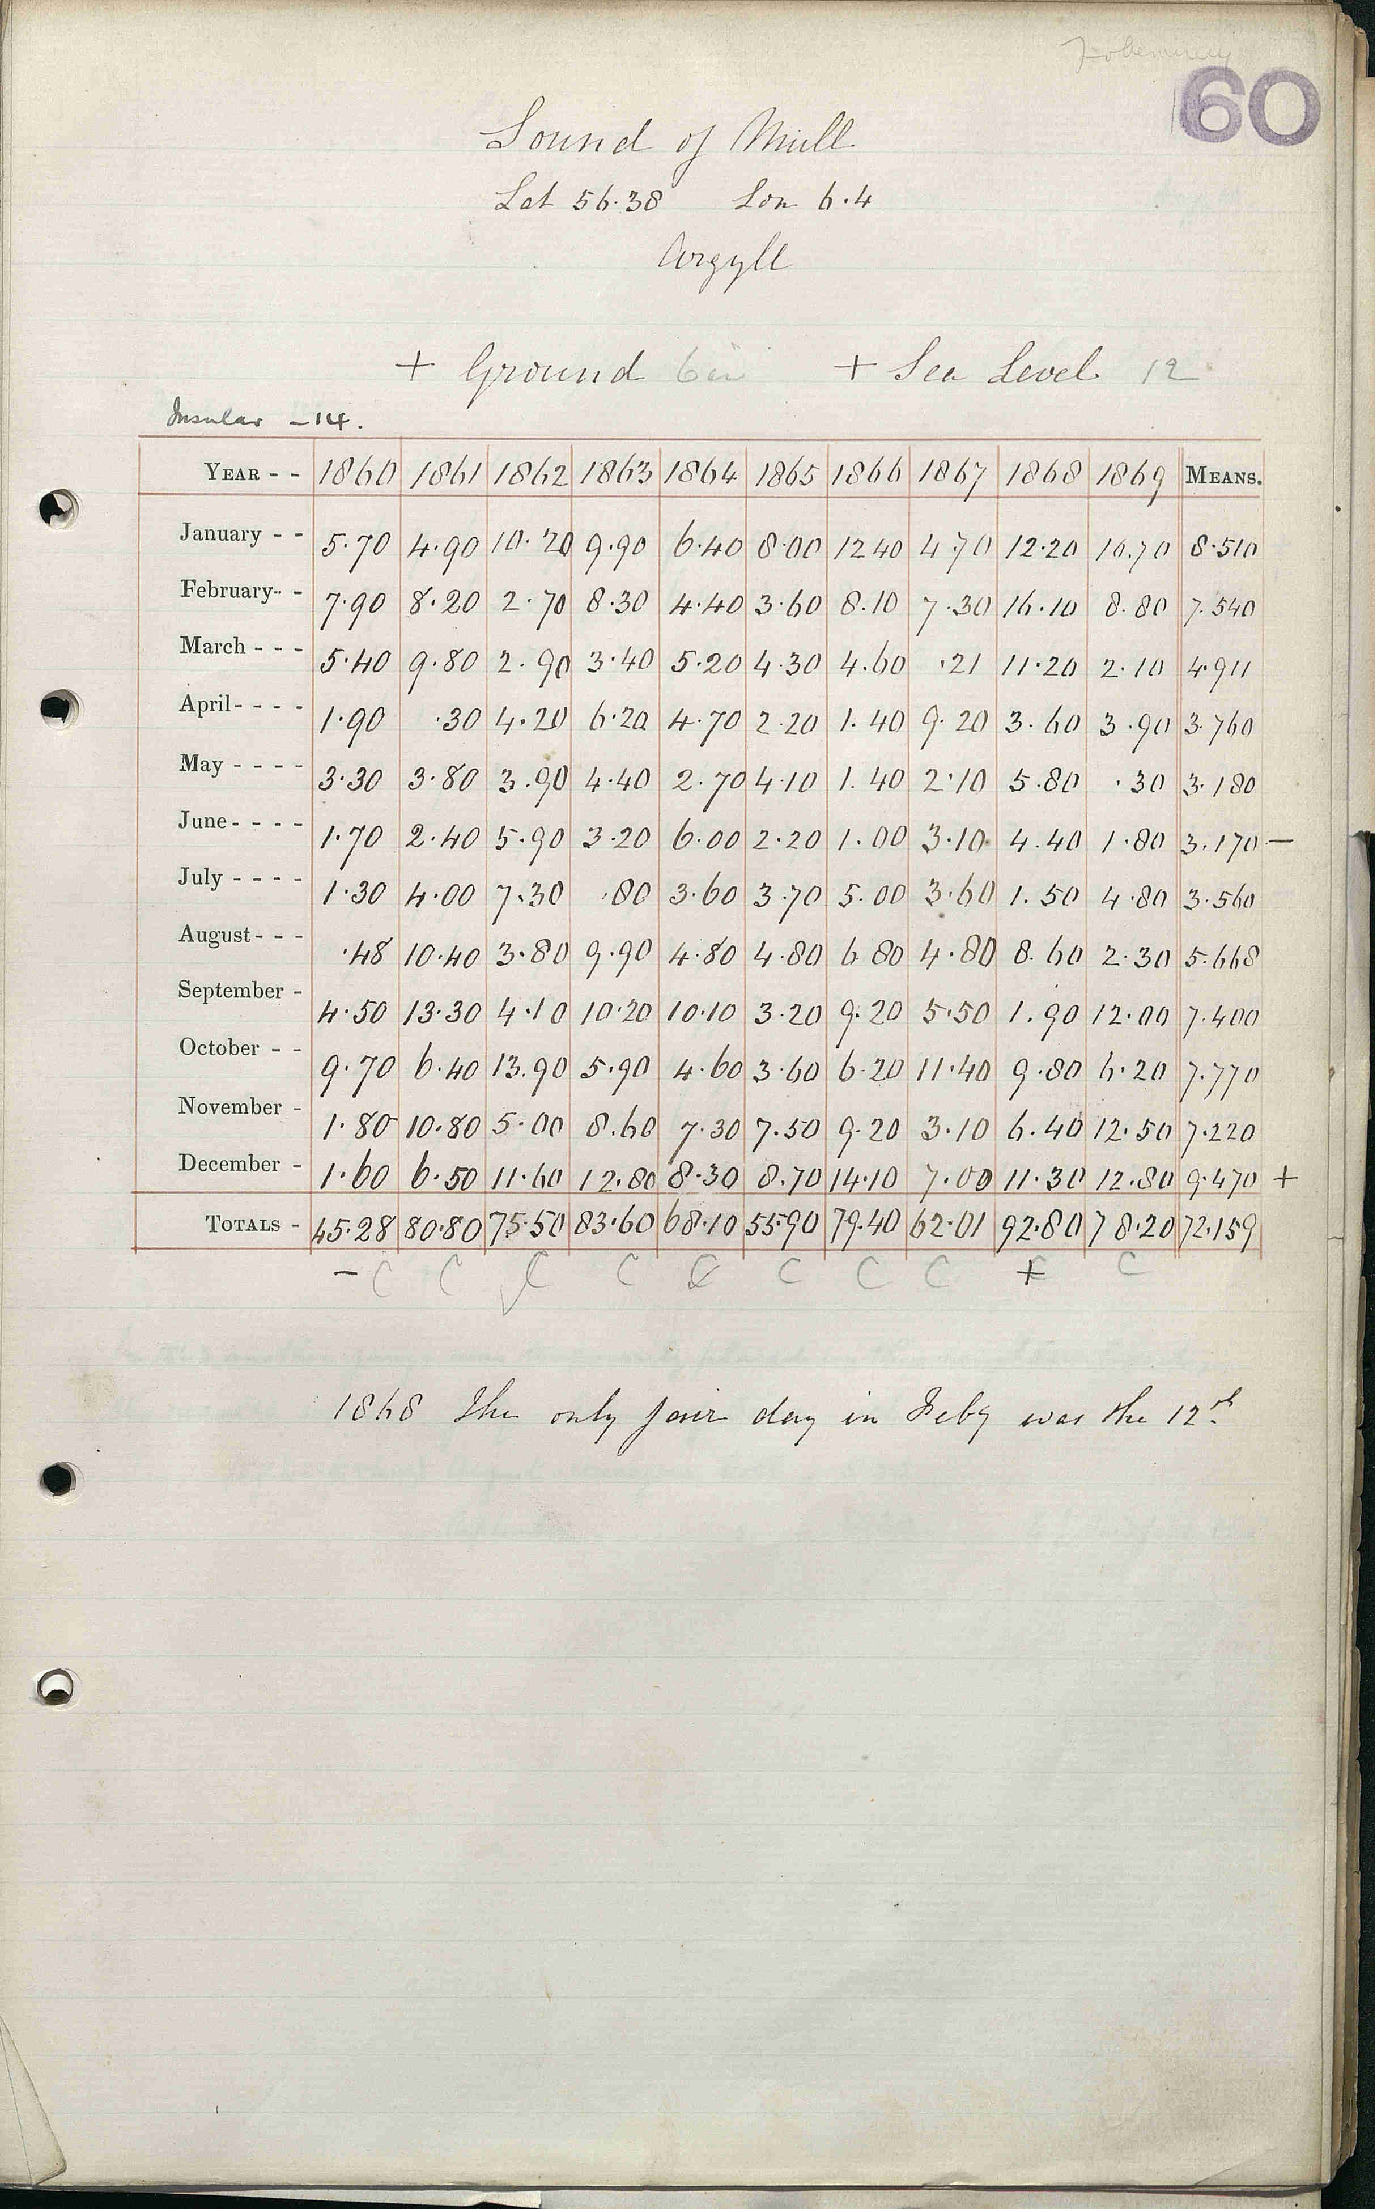 Tobermory
60
Sound of Mull
Lat 56.38 Lon 6.4
Argyll
+ Ground 6in + Sea Level 12
Insular - 14.
YEAR - - 1860 1861 1862 1863 1864 1865 1866 1867 1868 1869 MEANS.
January - - 5.70 4.90 10.20 9.90 6.40 8.00 12 40 4.70 12.20 10.70 8.510
February- - 7.90 8.20 2.70 8.30 4.40 3.60 8.10 7.30 16.10 8.80 7.540
March - - - 5.40 9.80 2.90 3.40 5.20 4.30 4.60 .21 11.20 2.10 4.911
April- - - - 1.90 .30 4.20 6.20 4.70 2.20 1.40 9.20 3.60 3.90 3.760
May - - - - 3.30 3.80 3.90 4.40 2.70 4.10 1.40 2.10 5.80 .30 3.180
June- - - - 1.70 2.40 5.90 3.20 6.00 2.20 1.00 3.10 4.40 1.80 3.170 —
July - - - - 1.30 4.00 7.30 .80 3.60 3.70 5.00 3.60 1.50 4.80 3.560
August- - - .48 10.40 3.80 9.90 4.80 4.80 6.80 4.80 8.60 2.30 5.668
September - 4.50 13.30 4.10 10.20 10.10 3.20 9.20 5.50 1.90 12.00 7.400
October - - 9.70 6.40 13.90 5.90 4.60 3.60 6.20 11.40 9.80 6.20 7.770
November - 1.80 10.80 5.00 8.60 7.30 7.50 9.20 3.10 6.40 12.50 7.220
December - 1.60 6.50 11.60 12.80 8.30 8.70 14.10 7.00 11.30 12.80 9.470 +
TOTALS - 45.28 80.80 75.50 83.60 68.10 55.90 79.40 62.01 92.80 78.20 72.159
— C C C C C C C C + C
1868 The only fair day in Feby was the 12th